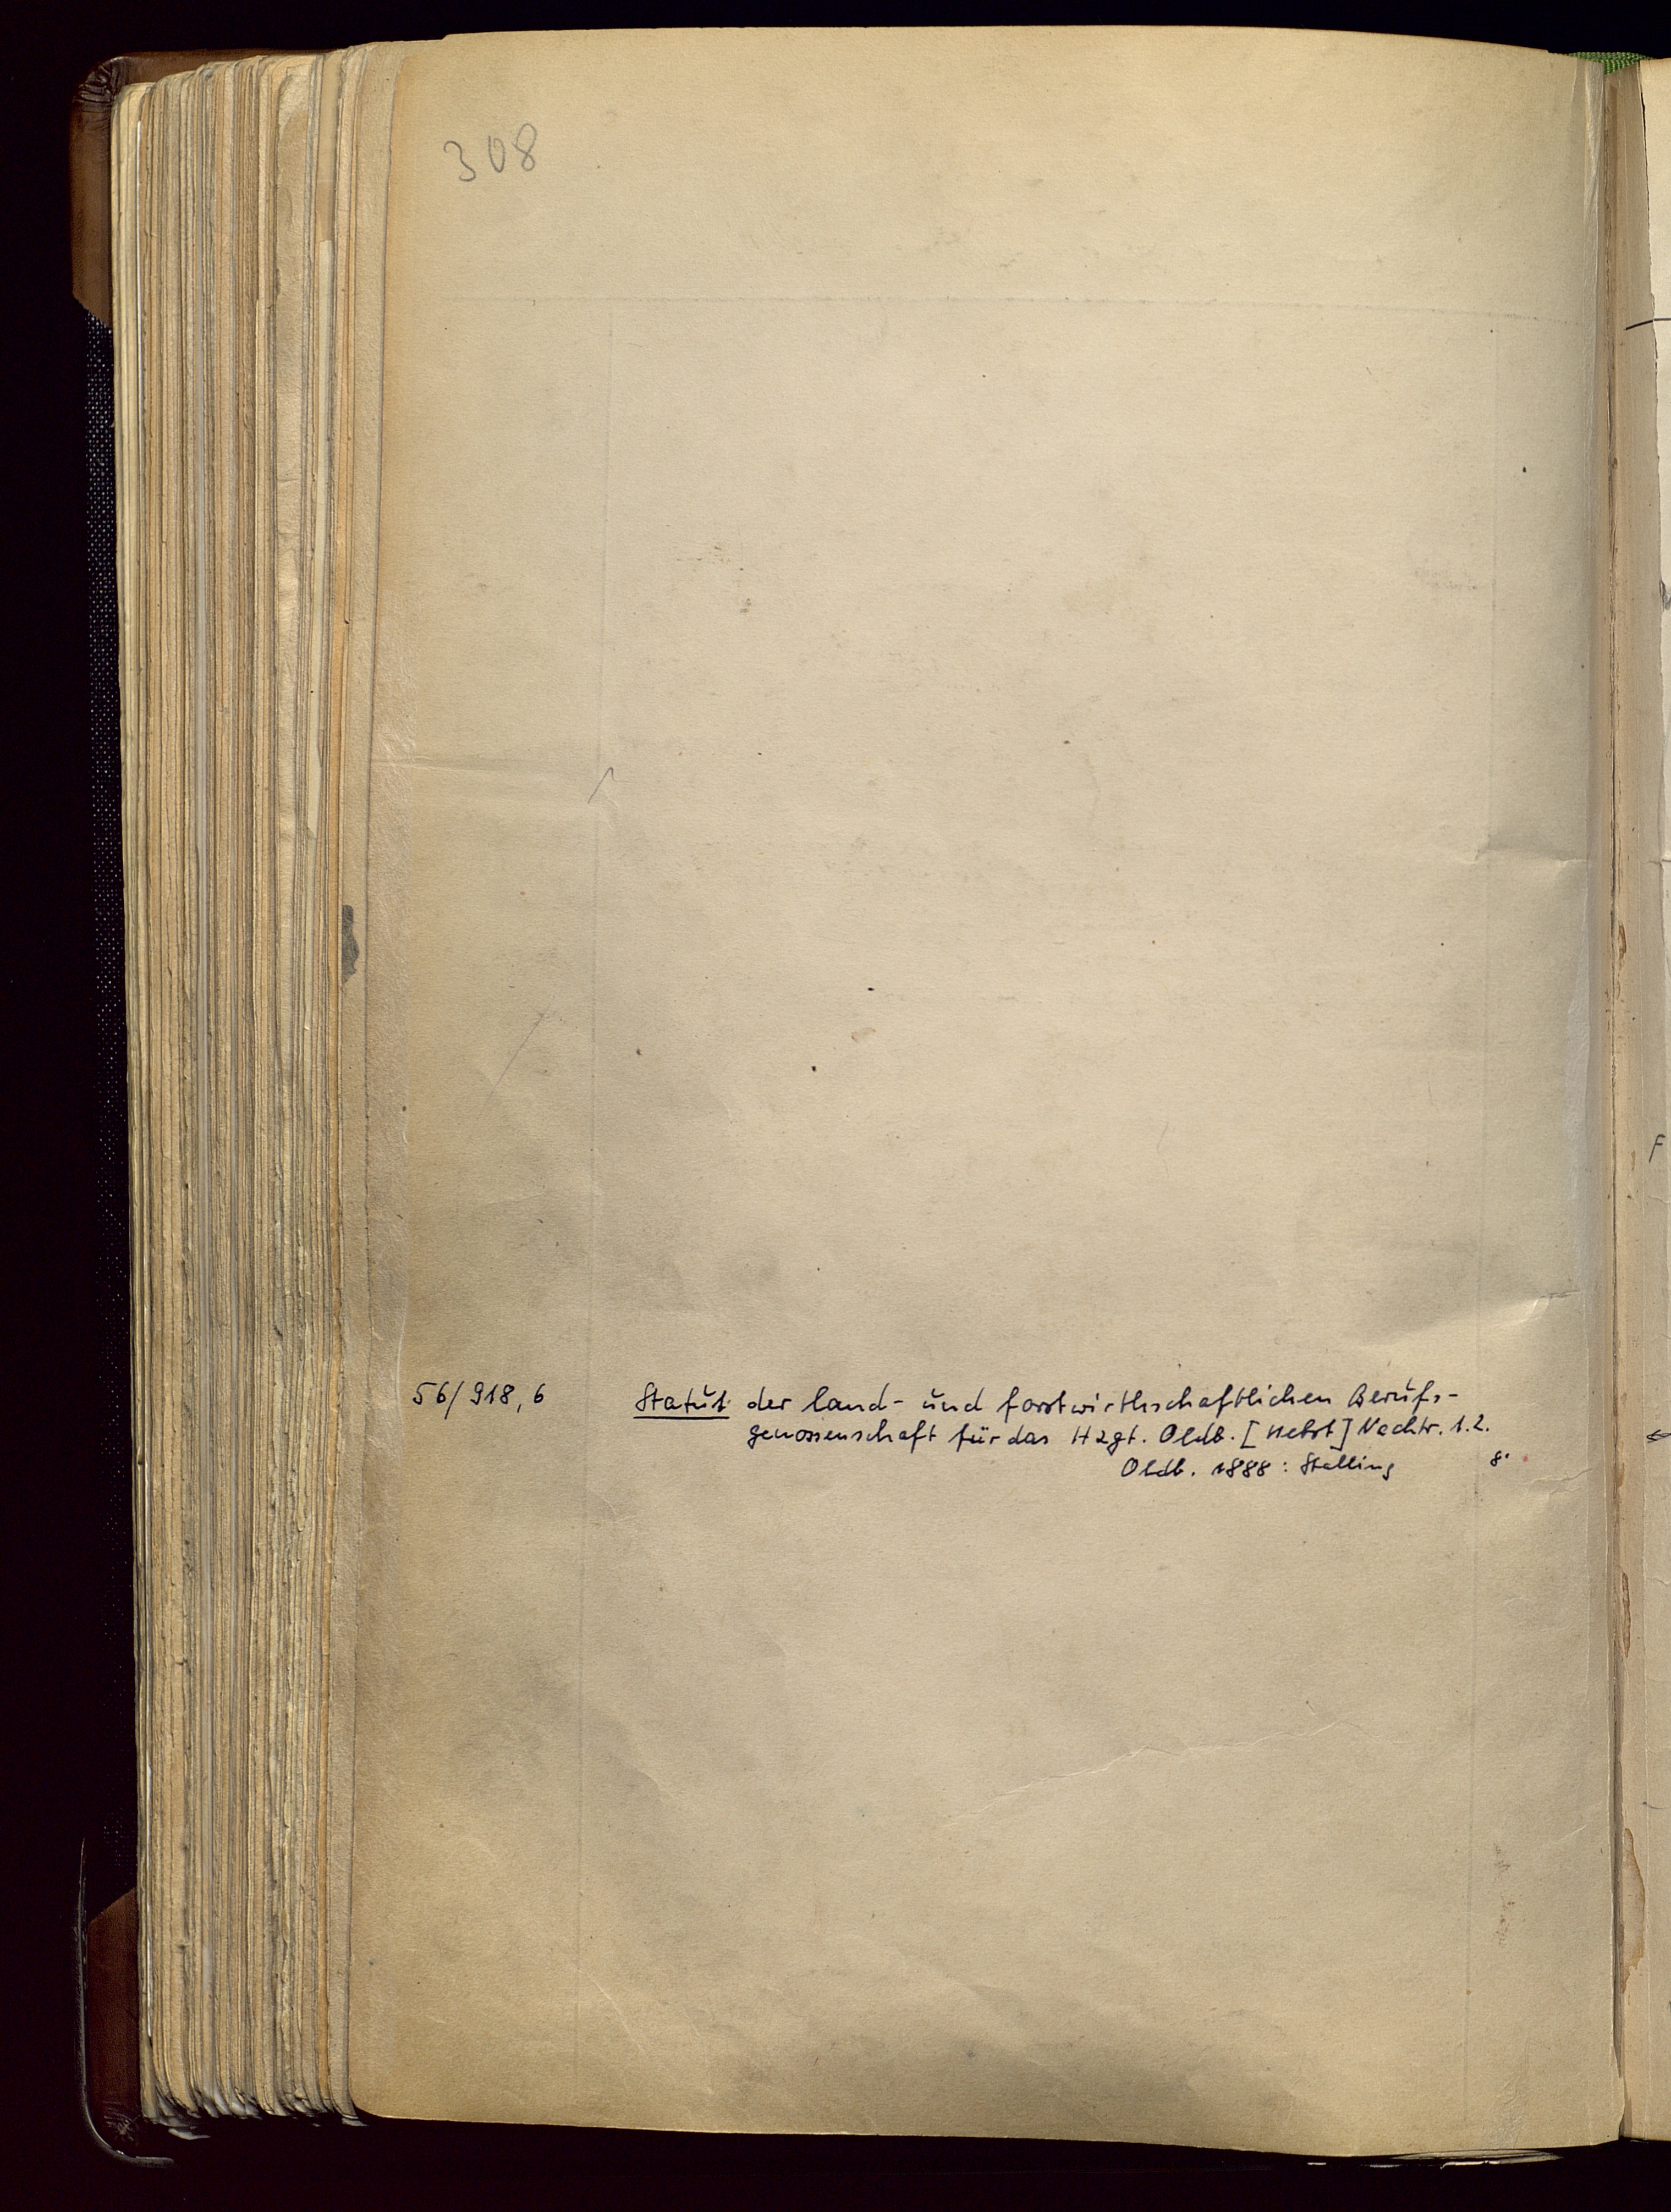 308
56/918,6 Statut der land- und forstwirthschaftlichen Berufs-
genossenschaft für das Hzgt. Oldb. [Nebst] Nachtr. 1.2.
Oldb. 1888: Stalling 8°